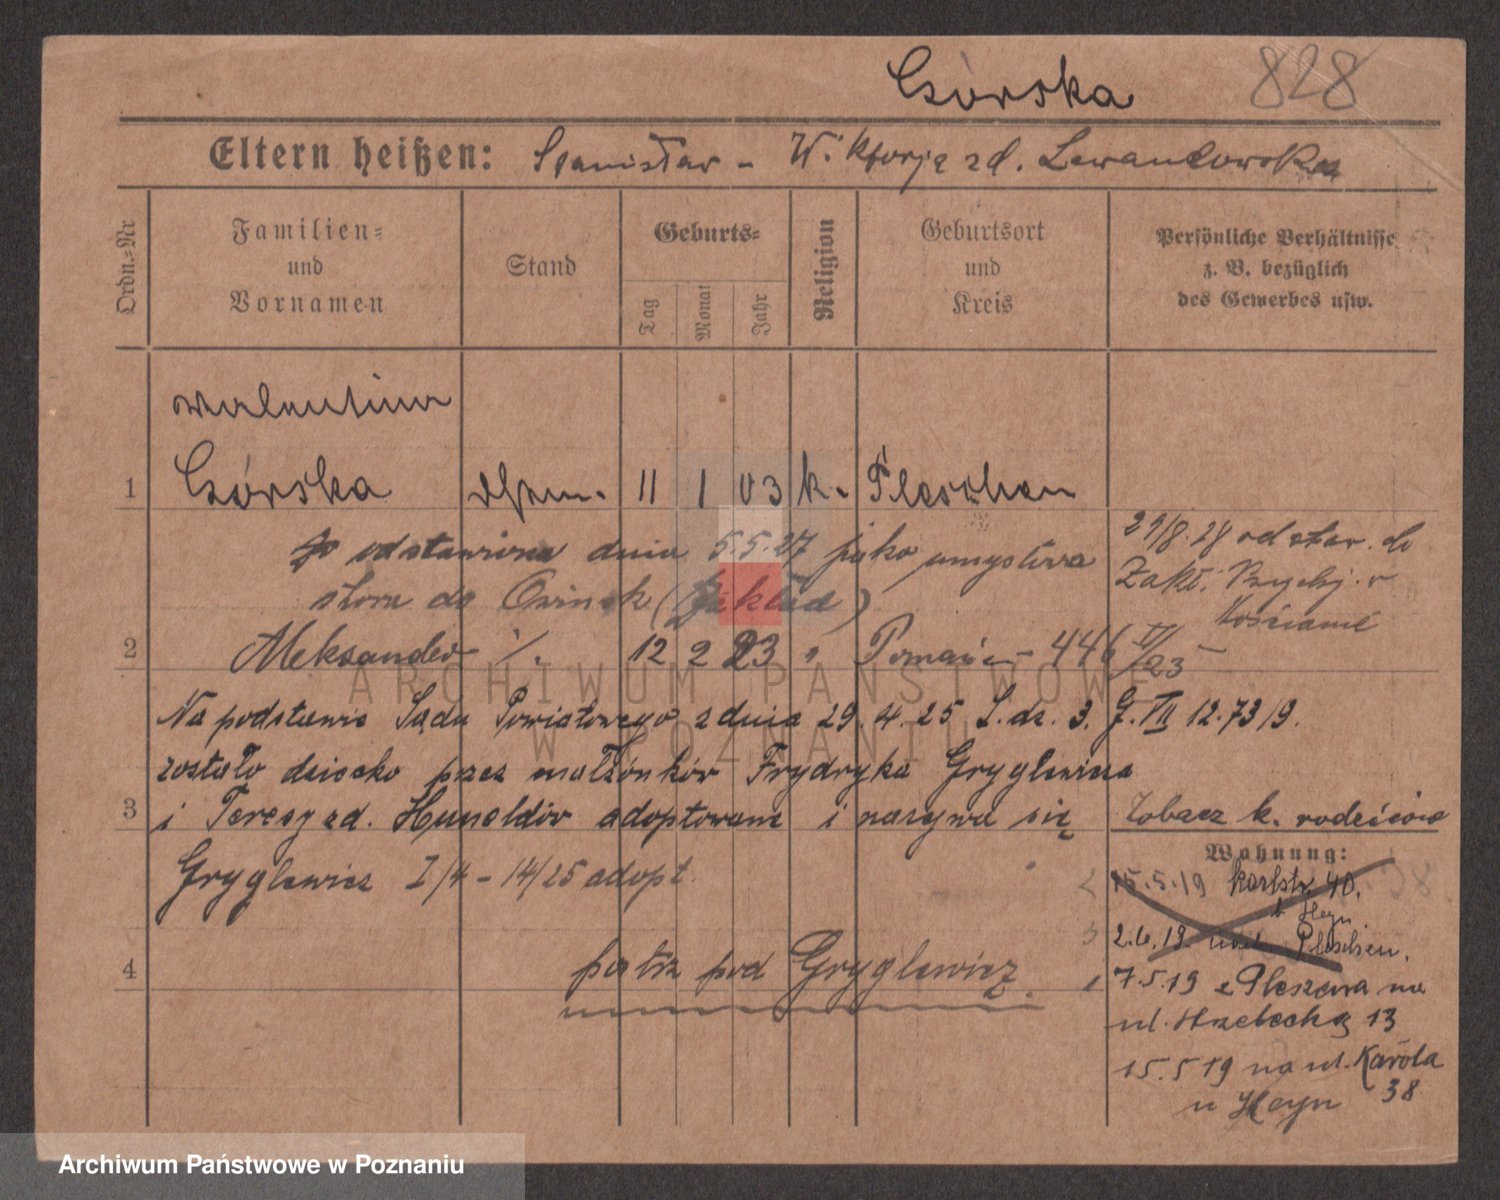 Górska 828
Eltern heißen: Stanisław - Wiktorja zd. Lewandowska
Ordn.-Nr
Familien- und Vornamen
Stand
Geburts-
Tag Monat Jahr
Religion
Geburtsort und Kreis
Persönliche Verhältnisse
z. B. bezüglich
des Gewerbes usw.
Walentina
1 Górska 11 1 03 k. Pleschen
odstawiona dnia 5.5.27 jako umysłowo
chora do Owinsk (Zakład)
29/8.28 odstaw. do
Zakł. Psychj. w
Kościanie
2 Aleksander 12 2 23 " Poznań - 446 IV/23
Na podstawie Sądu Powiatowego z dnia 29.4.25 L.dz. 3. G. VII 12.73/9.
zostało dziecko przez małżonków Frydryka Gryglewicza
3 i Teresy zd. Hunoldów adoptowane i nazywa się
Zobacz k. rodziców
Gryglewicz I/4 - 14/25 adopt.
4 patrz pod Gryglewicz.
Wohnung:
2 15.5.19 Karlstr. 40.
b Heyn.
3 2.6.19. nach Pleschen.
1 7.5.19 z Pleszewa na
ul. Strzelecką 13
15.5.19 na ul. Karola
38
u Heyn
ARCHIWUM PAŃSTWOWE
W POZNANIU
Archiwum Państwowe w Poznaniu